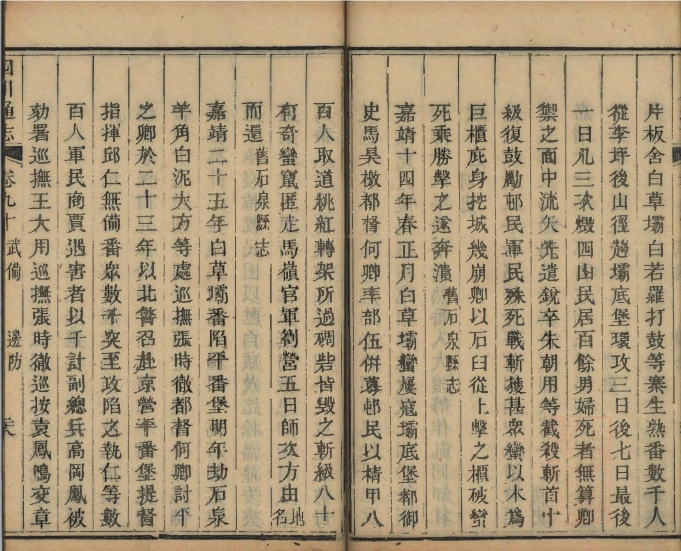 片板舍白草壩白若羅打鼓等寨生熟番數千人
從李坪後山徑趨壩底堡環攻三日後七日最後
一日凡三次燬四山民居百餘男婦死者無算卿
禦之面中流矢先遣銳卒朱朝用等截殺斬首十
級復鼓勵邨民軍民殊死戰斬獲甚衆蠻以木爲
巨櫃庇身挖城幾崩卿以石臼從上擊之櫃破蠻
死乘勝擊之遂奔潰舊石泉縣志
嘉靖十四年春正月白草壩蠻屢寇壩底堡都御
史馬昊檄都督何卿率部伍併募邨民以精甲八
百人取道桃紅轉架所過碉砦皆毀之斬級八十
有奇蠻竄匿走馬嶺官軍劄營五日師次方由地名
而還舊石泉縣志
嘉靖二十五年白草壩番陷平番堡明年劫石泉
羊角白泥大方等處巡撫張時徹都督何卿討平
之卿於二十三年以北警召赴京營平番堡提督
指揮邱仁無備番衆數千突至攻陷之執仁等數
百人軍民商賈遇害者以千計副總兵高岡鳳被
劾署巡撫王大用巡撫張時徹巡按袁鳳鳴交章
四川通志
卷九十
武備
邊防